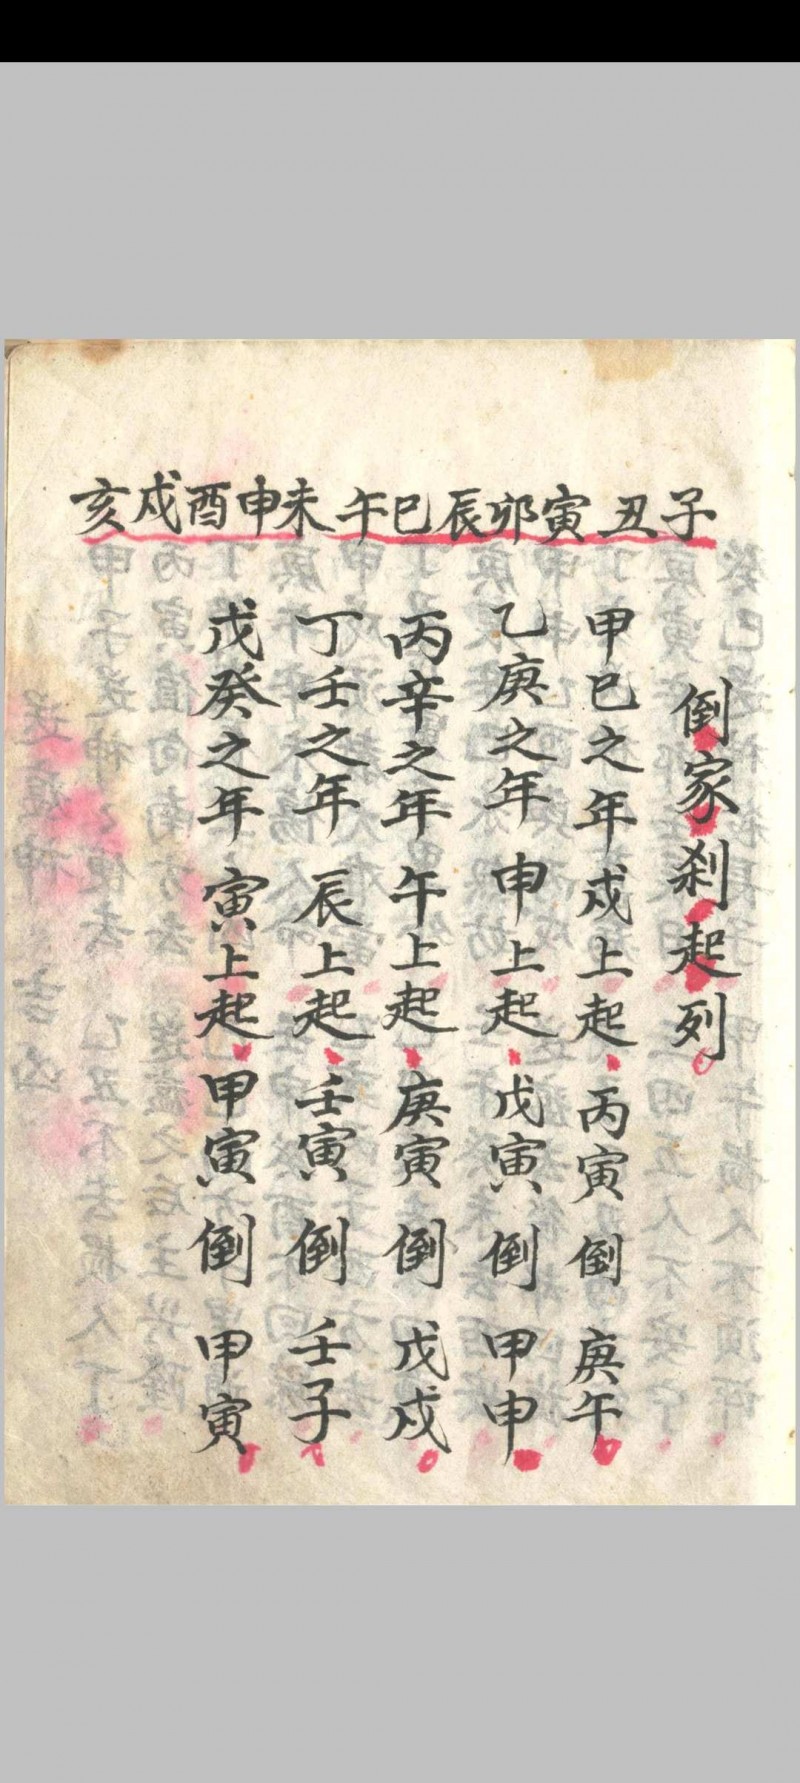 子丑寅卯辰巳午未申酉戌亥
倒家刹起列
甲巳之年戌上起丙寅倒庚午
乙庚之年申上起戊寅倒甲申
丙辛之年午上起庚寅倒戊戌
丁壬之年辰上起壬寅倒壬子
戊癸之年寅上起甲寅倒甲寅